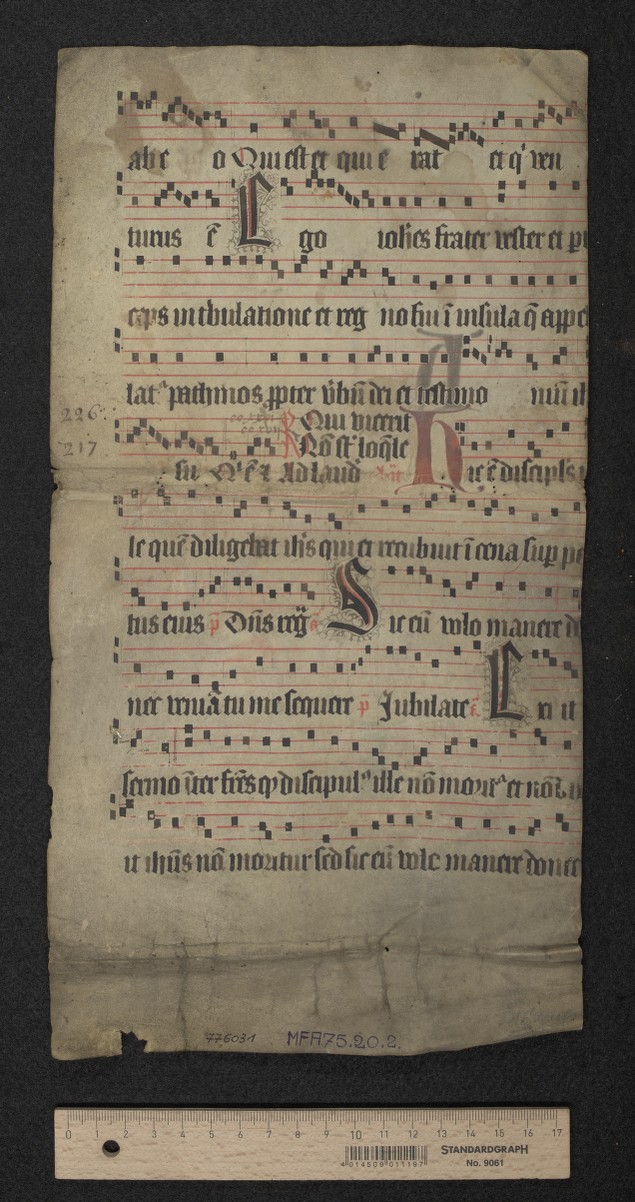 abe o Qui est et qui e rat et qͥ ven
turus ē Ego ioħes frater vester et p
ceps in tbulatione et reg no fui ī insula q̄ appel
latᷣ pathmos ꝓpter v̓bū dei et testimo niū
Qui vicerit
226.
217
Nō sūt loq̄le
su Ad laud Hic ē discipls
le quē diligebat ihs qui et recubuit ī cena suꝑ pe
tus eius p̄ Dn̄s reg̅ Sic eū volo manere d
nec veniā tu me sequere p̄ Jubilate Exi it
sermo īter fr̄es ꝙ discipulꝰ ille nō moritᷣ et nō
it ihūs nō moritur sed sic eū volo manere donec
776031 MFA75.20.2.
0 1 2 3 4 5 6 7 8 9 10 11 12 13 14 15 16 17
4 014509 011197
STANDARDGRAPH
No. 9061